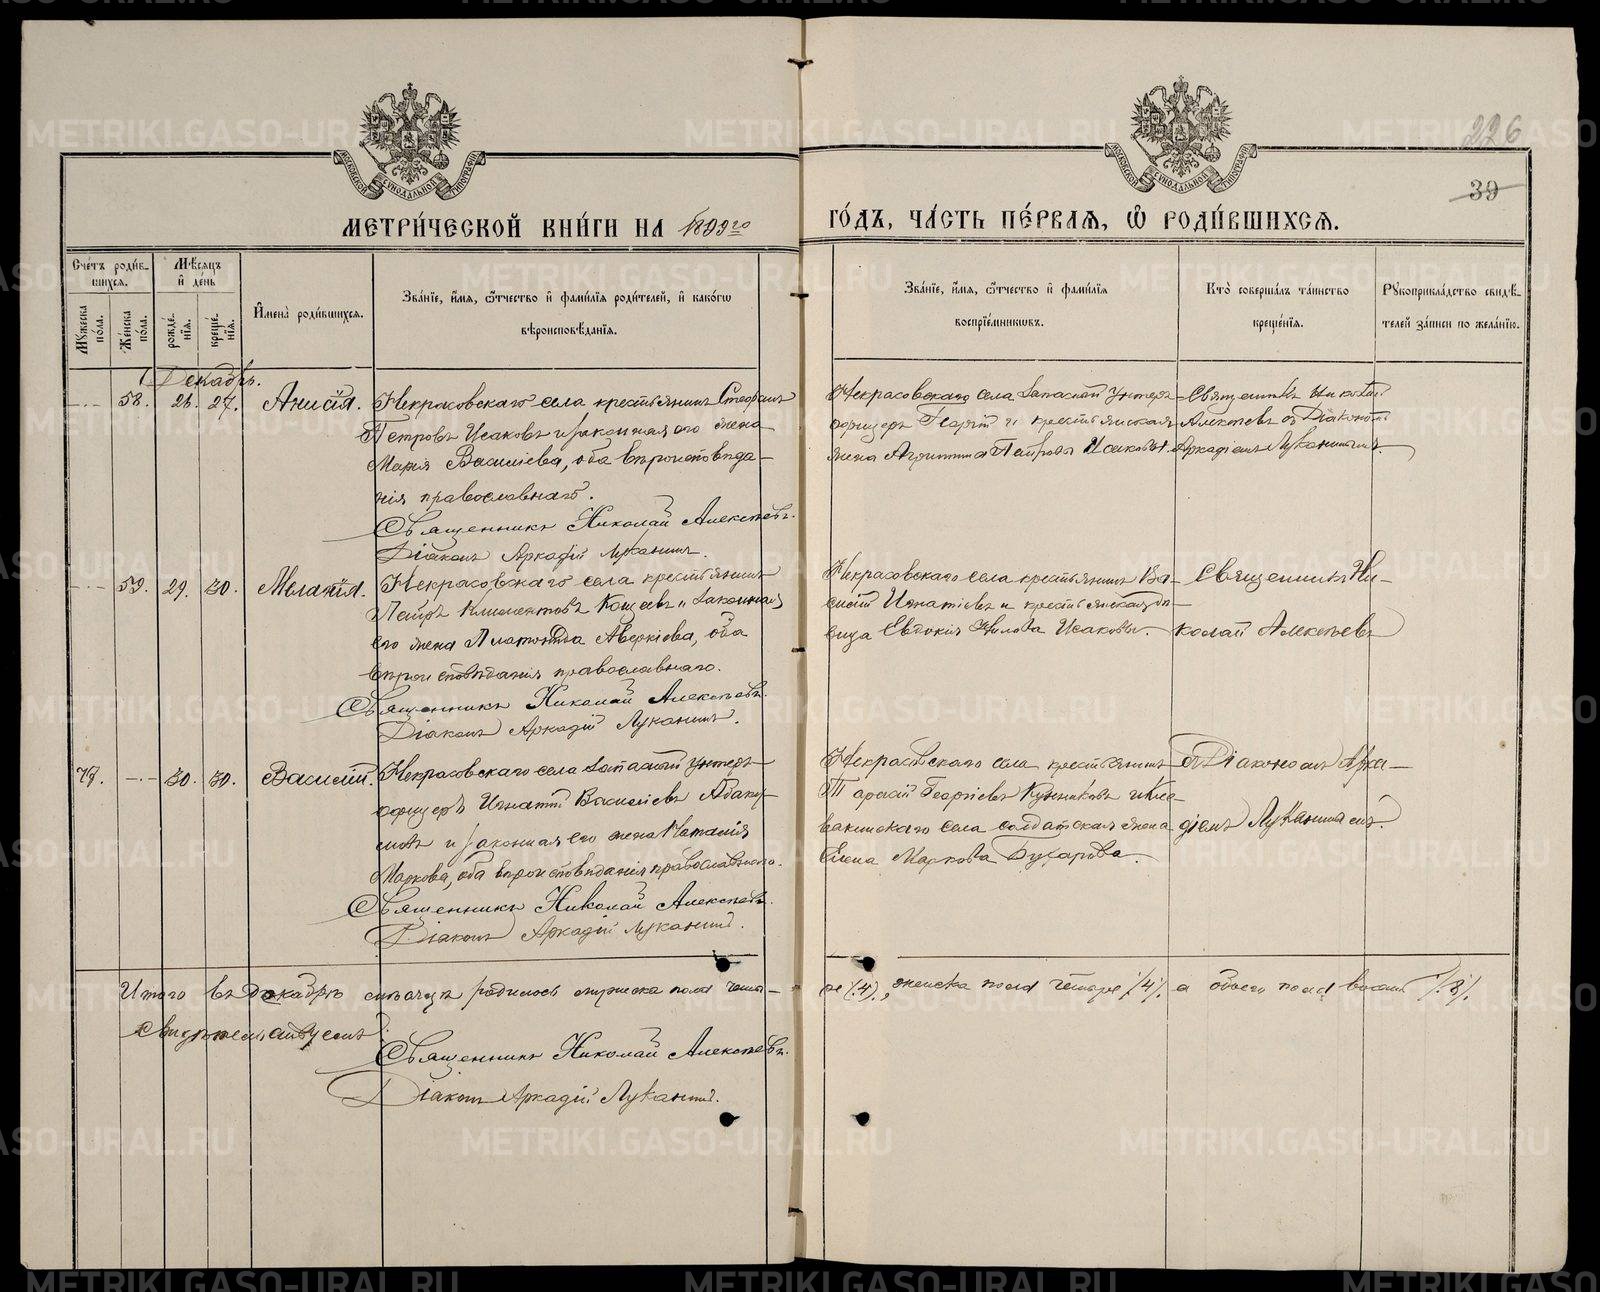 226
39
МОСКОВСКОЙ СѴНОДАЛЬНОЙ ТИПОГРАФІИ
МОСКОВСКОЙ СѴНОДАЛЬНОЙ ТИПОГРАФІИ
МЕТРИ́ЧЕСКОЙ КНИ́ГИ НА 1899го
ГО́ДЪ, ЧА́СТЬ ПЕ́РВАЯ, Ѡ РОДИ́ВШИХСЯ.
Сче́тъ роди́в-
шихся.
Мѣ́сяцъ
и҆ де́нь
Мꙋ́жеска
по́ла.
Же́нска
по́ла.
рожде́-
нїя.
креще́-
нїя.
И҆мена̀ роди́вшихся.
Зва́нїе, и҆́мя, ѻ҆́тчество и҆ фами́лїя роди́телей, и҆ како́гѡ
вѣроисповѣ́данїя.
Зва́нїе, и҆́мя, ѻ҆́тчество и҆ фами́лїя
воспрїе́мникѡвъ.
Кто̀ соверша́лъ та́инство
креще́нїя.
Рꙋкоприкла́дство свидѣ́-
телей за́писи по жела́нїю.
Декабрь.
58. 26. 27. Анисія.
Некрасовскаго села крестьянинъ Стефанъ
Петровъ Исаковъ и законная его жена
Марія Василіева, оба вѣроисповѣда-
нія православнаго.
Священникъ Николай Алексѣевъ.
Діаконъ Аркадій Луканинъ.
Некрасовскаго села запасный унтеръ-
офицеръ Георгій и крестьянская
жена Агриппина Петровы Исаковы.
Священникъ Николай
Алексѣевъ съ Діакономъ
Аркадіемъ Луканинымъ.
59. 29. 30. Меланія.
Некрасовскаго села крестьянинъ
Петръ Климентовъ Кощеевъ и законная
его жена Платонида Аверкіева, оба
вѣроисповѣданія православнаго.
Священникъ Николай Алексѣевъ.
Діаконъ Аркадій Луканинъ.
Некрасовскаго села крестьянинъ Ва-
силій Игнатіевъ и крестьянская дѣ-
вица Евдокія Исаковы.
Священникъ Ни-
колай Алексѣевъ
47. 30. 30. Василій.
Некрасовскаго села запасный унтеръ-
офицеръ Игнатій Василіевъ Абаку-
мовъ и законная его жена Наталія
Маркова, оба вѣроисповѣданія православнаго.
Священникъ Николай Алексѣевъ.
Діаконъ Аркадій Луканинъ.
Некрасовскаго села крестьянинъ
Тарасій Георгіевъ и Кле-
вакинскаго села солдатская жена
Елена Маркова Бухарова.
съ Діакономъ Арка-
діемъ Луканинымъ.
Итого въ декабрѣ мѣсяцѣ родилось мужеска пола четы-
ре /.4/., женска пола четыре /.4/. а обоего пола восемь /.8/.
Свидѣтельствуемъ:
Священникъ Николай Алексѣевъ.
Діаконъ Аркадій Луканинъ.
METRIKI.GASO-URAL.RU